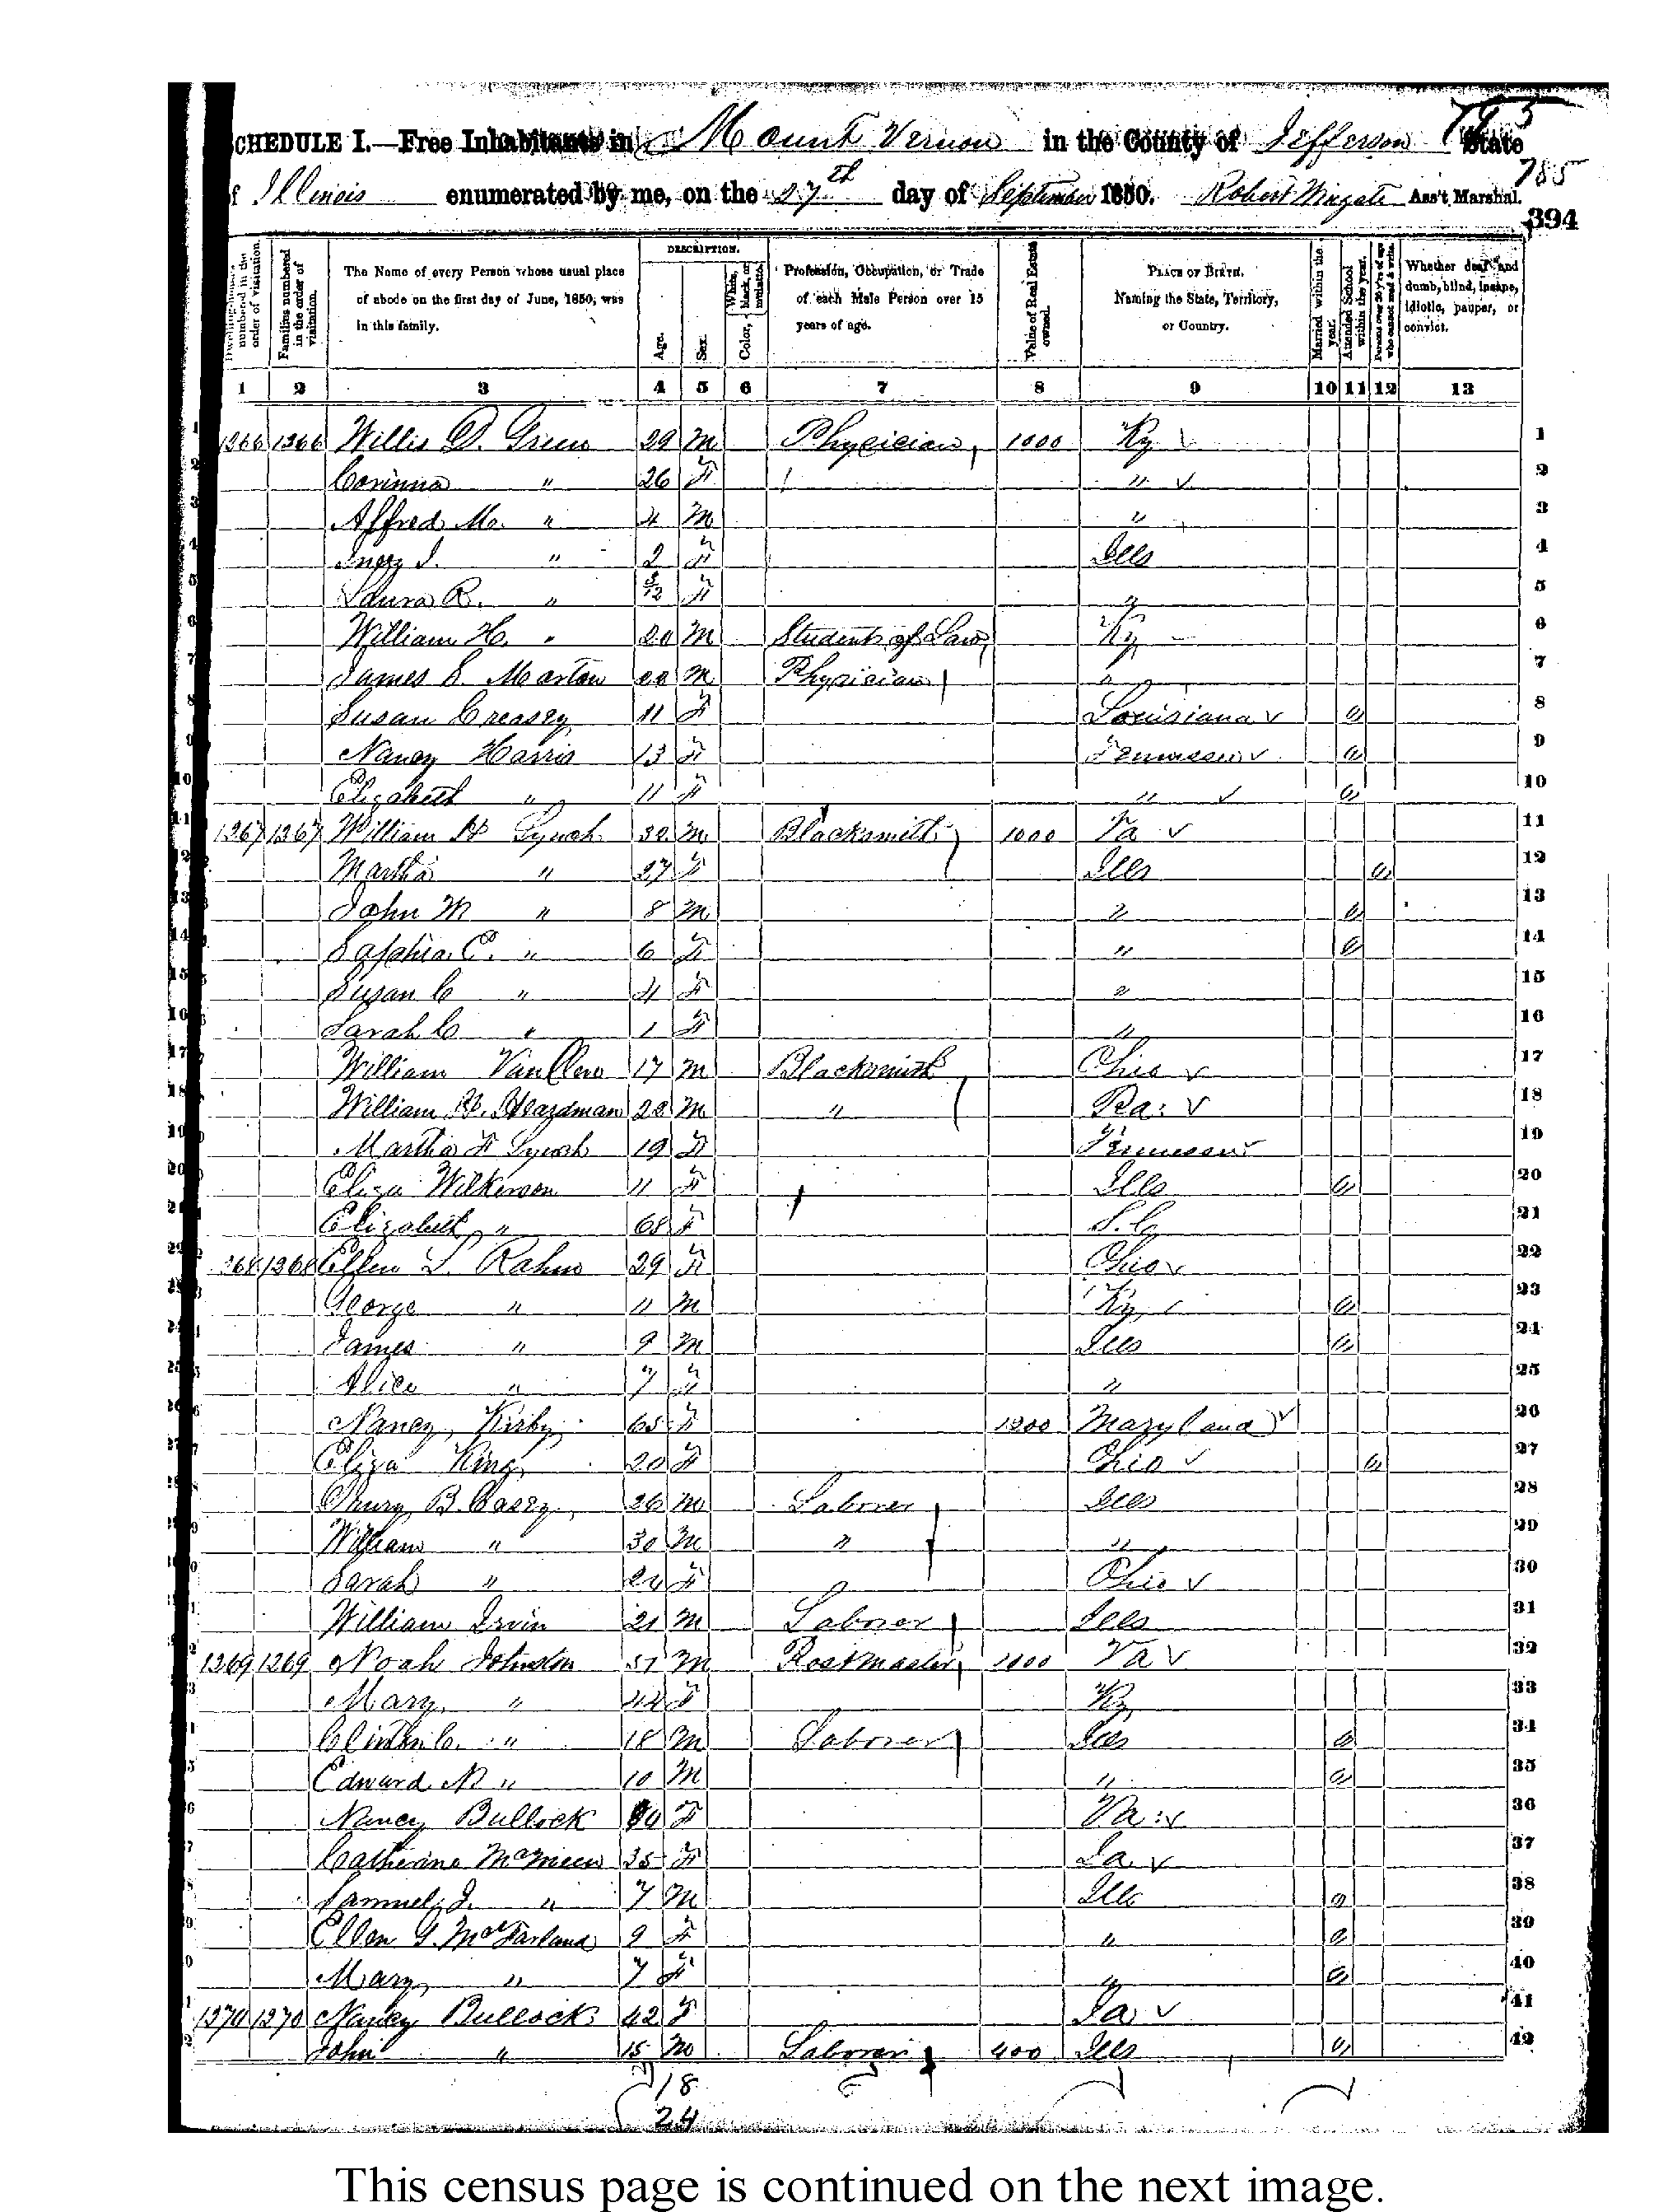 795
SCHEDULE I.—Free Inhabitants in Mount Vernon in the County of Jefferson State
785
of Illinois enumerated by me, on the 27th day of September 1850. Robert Wingate Ass't Marshal.
394
Dwelling-houses numbered in the order of visitation.
Families numbered in the order of visitation.
The Name of every Person whose usual place of abode on the first day of June, 1850, was in this family.
DESCRIPTION.
Age.
Sex.
Color, White, black, or mulatto.
Profession, Occupation, or Trade of each Male Person over 15 years of age.
Value of Real Estate owned.
PLACE OF BIRTH. Naming the State, Territory, or Country.
Married within the year.
Attended School within the year.
Persons over 20 y'rs of age who cannot read & write.
Whether deaf and dumb, blind, insane, idiotic, pauper, or convict.
1 2 3 4 5 6 7 8 9 10 11 12 13
1 1266 1266 Willis D. Green 29 M Physician 1000 Ky 1
2 Corinna " 26 F " 2
3 Alfred M. " 4 M " 3
4 Inez I. " 2 F Ills 4
5 Laura R. " 3/12 F " 5
6 William H. " 20 M Student of Law Ky 6
7 James S. M M Physician " 7
8 Susan Creasey 11 F Louisiana 8
9 Nancy Harris 13 F Tennessee 9
10 Elizabeth " 11 F " 10
11 1267 1267 William H Lynch 32 M Blacksmith 1000 Va 11
12 Martha " 27 F Ills 12
13 John M " 8 M " 13
14 Saphia E. " 6 F " 14
15 Susan C " 4 F " 15
16 Sarah C " 1 F " 16
17 William 17 M Blacksmith Ohio 17
18 William H. 20 M " Pa: 18
19 Martha F Lynch 19 F Tennessee 19
20 Eliza Wilkerson 11 F Ills 20
21 Elizabeth " 68 F S.C 21
22 1268 1268 Ellen L. Rahm 29 F Ohio 22
23 George " 11 M Ky 23
24 James " 9 M Ills 24
25 Alice " 7 F " 25
26 Nancy Kirby 65 F 1200 Maryland 26
27 Eliza King 20 F Ohio 27
28 B. Casey 26 M Laborer Ills 28
29 William " 30 M " " 29
30 Sarah " 24 F Ohio 30
31 William Irvin 21 M Laborer Ills 31
32 1269 1269 Noah Johnston 51 M Postmaster 1000 Va 32
33 Mary " 44 F Ky 33
34 Clinton C. " 18 M Laborer Ills 34
35 Edward N " 10 M " 35
36 Nancy Bullock F Va: 36
37 Catherine 35 F 37
38 Samuel J. " 7 M Ills 38
39 Ellen G. McFarland 9 F " 39
40 Mary " 7 F " 40
41 1270 1270 Nancy Bullock 42 F 41
42 John " 15 M Laborer 400 Ills 42
18
24
This census page is continued on the next image.